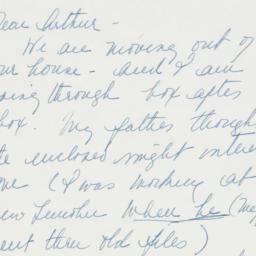 Dear Arthur -
We are moving out of
our house - and I am
going through box after
box. My father though
the enclosed might intere
me (I was working at
New Lincoln when he (Me
went thru old files)